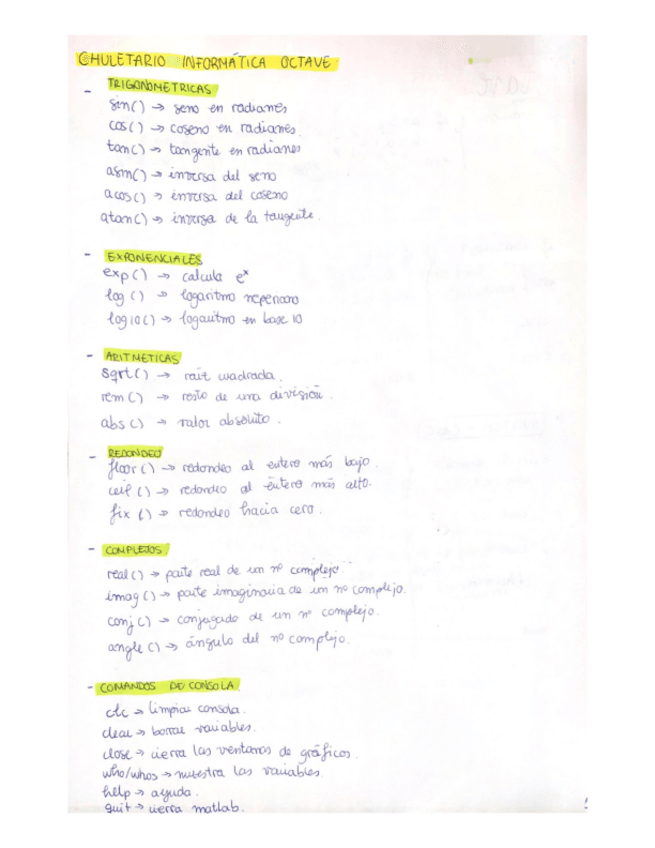 CHULETARIO INFORMÁTICA OCTAVE
- TRIGONOMETRICAS
sin() → seno en radianes
cos() → coseno en radianes.
tan() → tangente en radianes
asin() → inversa del seno
acos() → inversa del coseno
atan() → inversa de la tangente.
- EXPONENCIALES
exp() → calcula e^x
log() → logaritmo neperiano
log10() → logaritmo en base 10
- ARITMETICAS
sqrt() → raiz cuadrada.
rem() → resto de una división.
abs() → valor absoluto.
- REDONDEO
floor() → redondeo al entero más bajo.
ceil() → redondeo al entero más alto.
fix() → redondeo hacia cero.
- COMPLEJOS
real() → parte real de un nº complejo.
imag() → parte imaginaria de un nº complejo.
conj() → conjugado de un nº complejo.
angle() → ángulo del nº complejo.
- COMANDOS DE CONSOLA
clc → limpiar consola.
clear → borrar variables.
close → cierra las ventanas de gráficos.
who/whos → muestra las variables.
help → ayuda.
quit → cierra matlab.